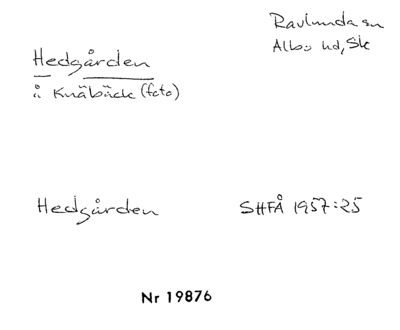 Ravlunda sn
Albo hd, Sk
Hedgården
i Knäbäck (foto)
Hedgården
SHFÅ 1957:25
Nr 19876